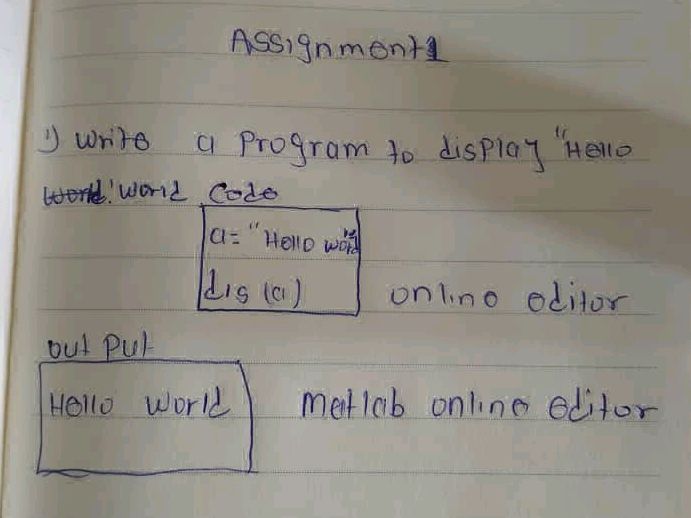 Assignment 1
1) write a program to display "Hello
world code
a= "Hello world"
dis (a)
online editor
out put
Hello world
matlab online editor